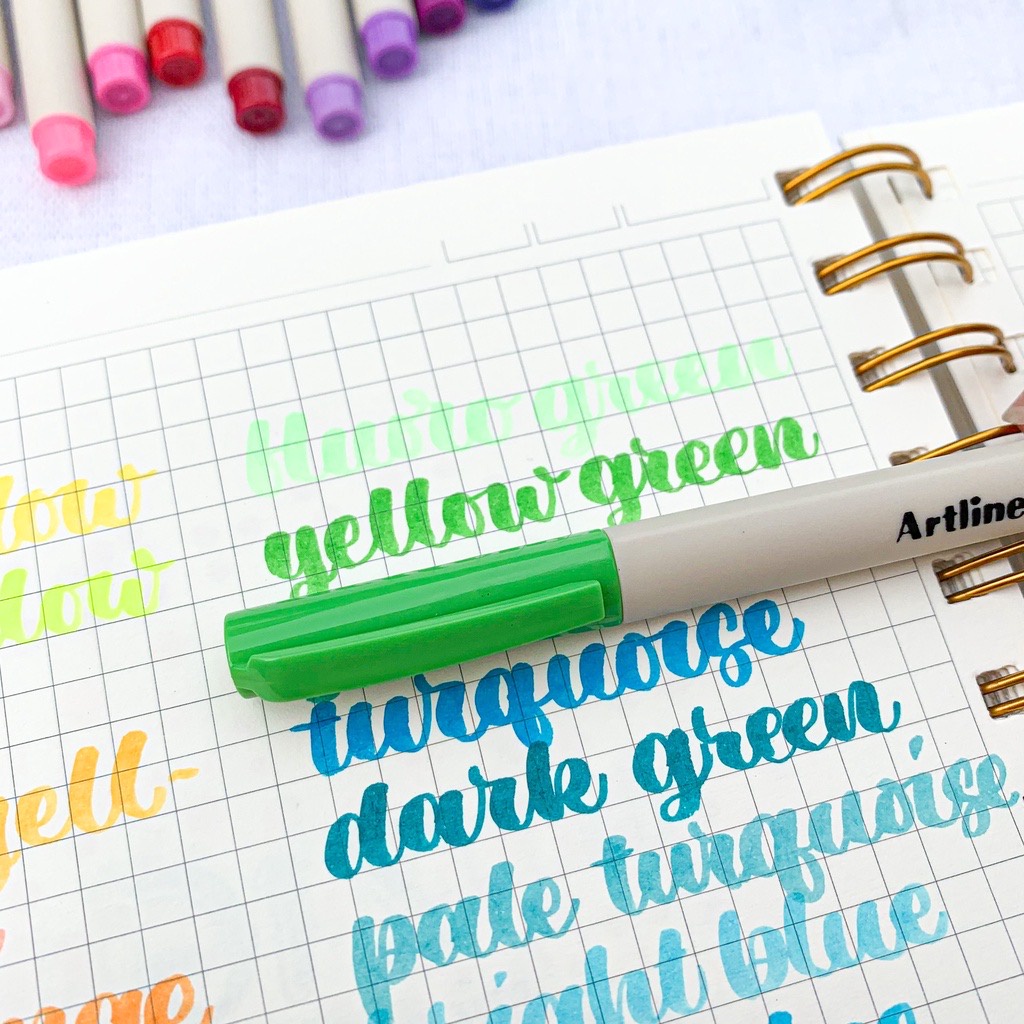 fluoro green
yellow green
Artline
turquoise
dark green
pale turquoise
light blue
low
low
yell-